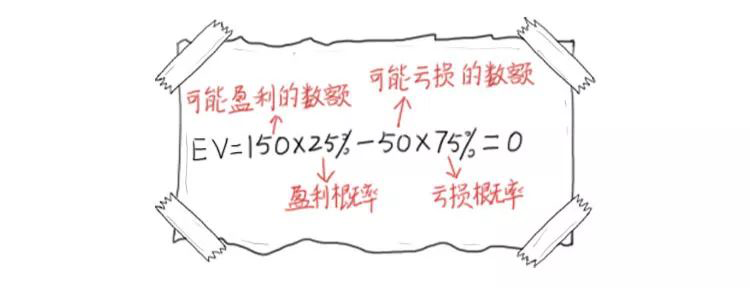 可能盈利的数额
可能亏损的数额
EV=150×25%-50×75%=0
盈利概率
亏损概率